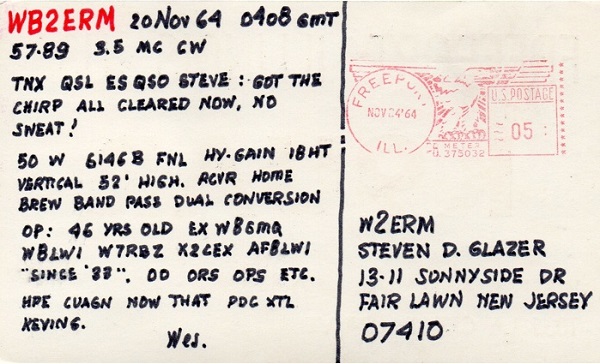 WB2ERM 20 NOV 64 0408 GMT
57-89 3.5 MC CW
TNX QSL ES QSO STEVE: GOT THE
CHIRP ALL CLEARED NOW, NO
SWEAT!
50 W 6146B FNL HY-GAIN 18HT
VERTICAL 52' HIGH. RCVR HOME
BREW BAND PASS DUAL CONVERSION
OP: 46 YRS OLD EX W86MQ
W8LWI W7RBZ X2CEX AF8LWI
"SINCE '33". OO ORS OPS ETC.
HPE CUAGN NOW THAT PDC XTL
KEYING.
Wes.
FREEPORT
NOV 24 '64
ILL.
U.S. POSTAGE
05
METER
375032
W2ERM
STEVEN D. GLAZER
13-11 SUNNYSIDE DR
FAIR LAWN NEW JERSEY
07410